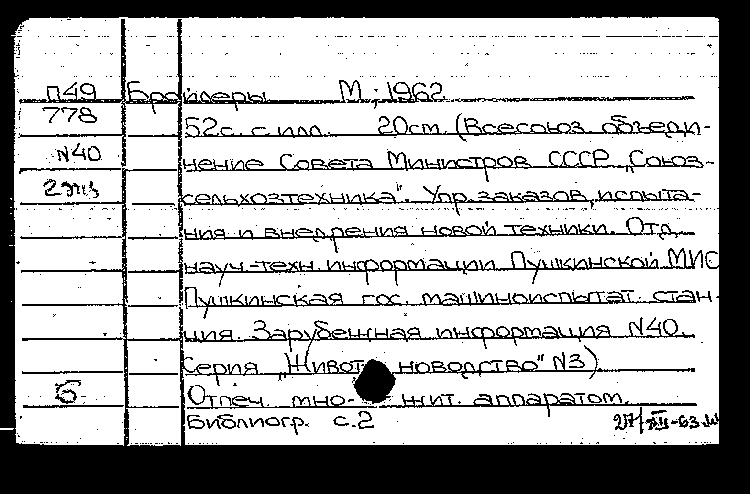 П49 Бройлеры М.; 1962
778 52с. с илл. 20см. (Всесоюз. объеди-
N40 нение Совета Министров СССР „Союз-
2экз сельхозтехника". Упр. заказов, испыта-
ния и внедрения новой техники. Отд.
науч.-техн. информации Пушкинской МИС
Пушкинская гос. машиноиспытат. стан-
ция. Зарубежная информация N40.
Серия „Животноводство" N3)
Б Отпеч. множит. аппаратом.
Библиогр. с.2 27/XII-63